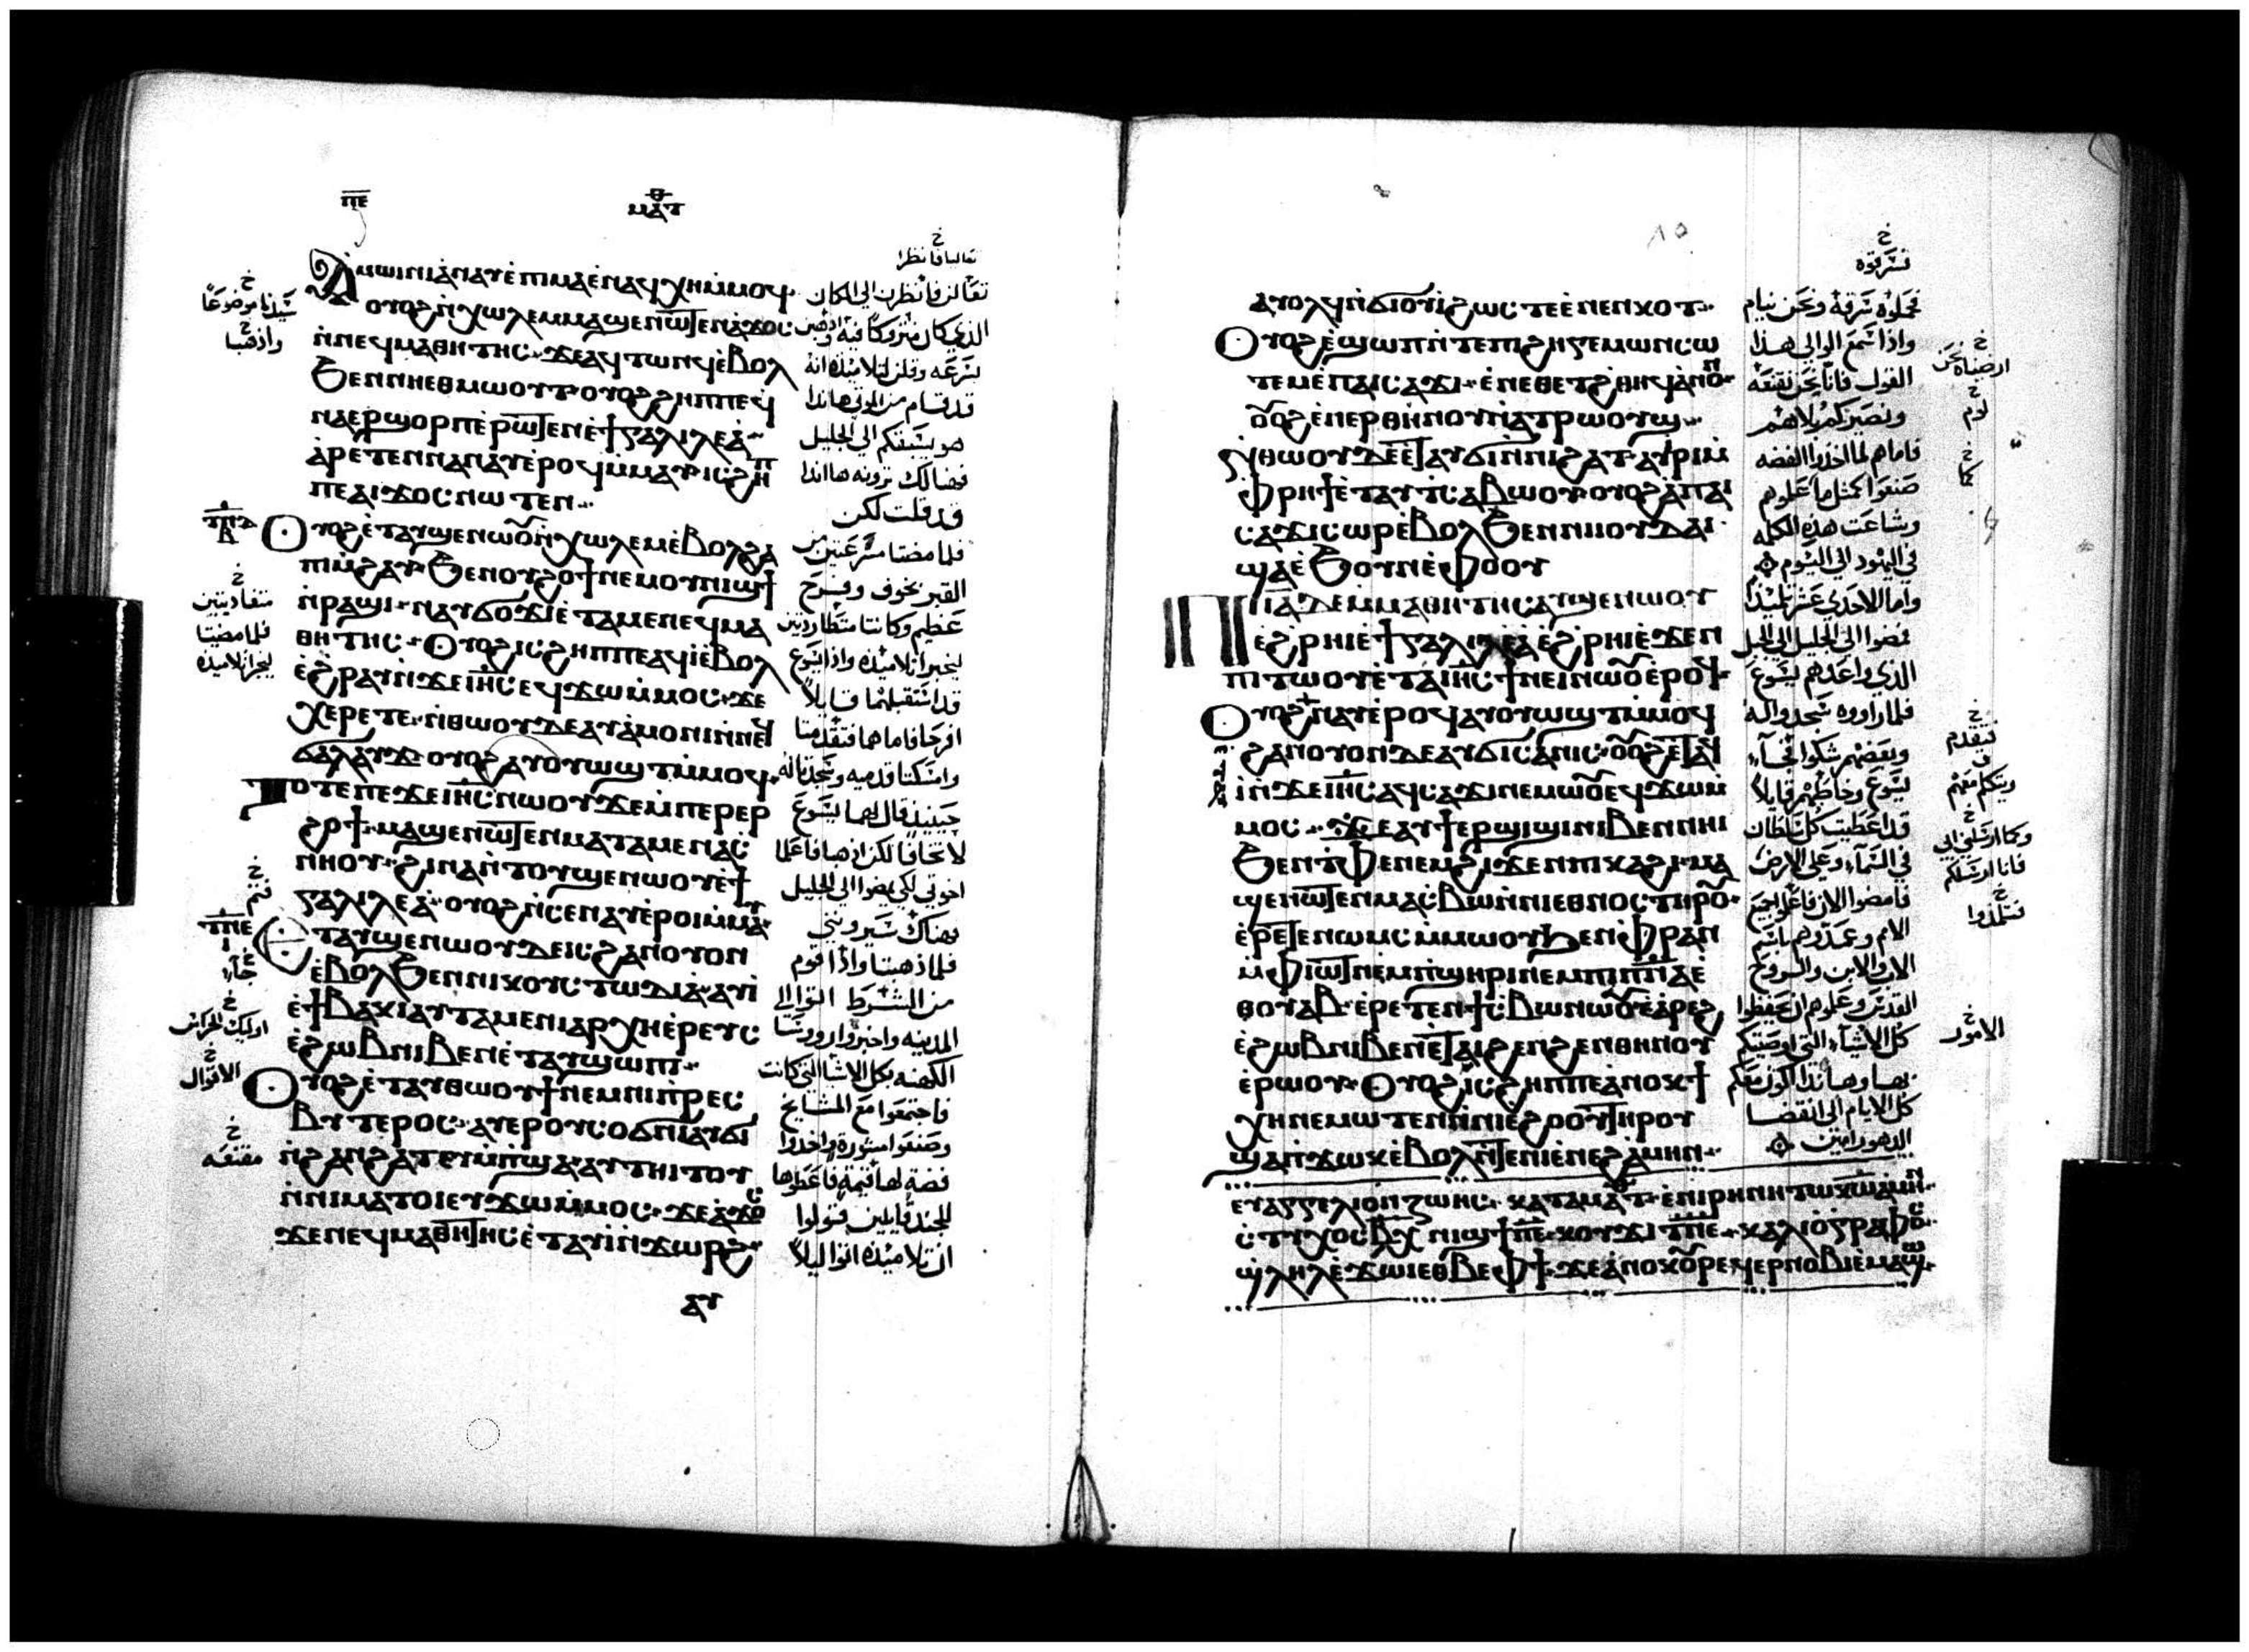 ⲡⲉ
ⲙⲁⲧ
ⲁⲙⲱⲓⲛⲓ ⲁⲛⲁⲩ ⲉⲡⲓⲙⲁ ⲉⲛⲁϥⲭⲏ ⲙⲙⲟϥ
ⲟⲩⲟϩ ⲛⲭⲱⲗⲉⲙ ⲙⲁϣⲉⲛⲱⲧⲉⲛ ⲁϫⲟⲥ
ⲛⲛⲉϥⲙⲁⲑⲏⲧⲏⲥ ϫⲉ ⲁϥⲧⲱⲛϥ ⲉⲃⲟⲗ
ϧⲉⲛ ⲛⲏⲉⲑⲙⲱⲟⲩⲧ ⲟⲩⲟϩ ϩⲏⲡⲡⲉ ϥ
ⲛⲁⲉⲣϣⲟⲣⲡ ⲉⲣⲱⲧⲉⲛ ⲉϯⲅⲁⲗⲓⲗⲉⲁ
ⲁⲣⲉⲧⲉⲛⲛⲁⲛⲁⲩ ⲉⲣⲟϥ ⲙⲙⲁⲩ ⲓⲥ ϩⲏⲡ
ⲡⲉ ⲁⲓϫⲟⲥ ⲛⲱⲧⲉⲛ
ⲟⲩⲟϩ ⲉⲧⲁⲩϣⲉⲛⲱⲟⲩ ⲛⲭⲱⲗⲉⲙ ⲉⲃⲟⲗ ϩⲁ
ⲡⲓⲙϩⲁⲩ ϧⲉⲛ ⲟⲩϩⲟϯ ⲛⲉⲙ ⲟⲩⲛⲓϣϯ
ⲛⲣⲁϣⲓ ⲛⲁⲩϭⲟϫⲓ ⲉⲧⲁⲙⲉ ⲛⲉϥⲙⲁ
ⲑⲏⲧⲏⲥ ⲟⲩⲟϩ ⲓⲥ ϩⲏⲡⲡⲉ ⲁϥⲓ ⲉⲃⲟⲗ
ⲉϩⲣⲁⲩ ⲛϫⲉ ⲓⲏⲥ ⲉϥϫⲱ ⲙⲙⲟⲥ ϫⲉ
ⲭⲉⲣⲉⲧⲉ ⲛⲑⲱⲟⲩ ⲇⲉ ⲁⲩⲁⲙⲟⲛⲓ ⲛⲛⲉϥ
ϭⲁⲗⲁⲩϫ ⲟⲩⲟϩ ⲁⲩⲟⲩⲱϣⲧ ⲙⲙⲟϥ
ⲧⲟⲧⲉ ⲡⲉϫⲉ ⲓⲏⲥ ⲛⲱⲟⲩ ϫⲉ ⲙⲡⲉⲣⲉⲣ
ϩⲟϯ ⲙⲁϣⲉⲛⲱⲧⲉⲛ ⲙⲁⲧⲁⲙⲉ ⲛⲁⲥ
ⲛⲏⲟⲩ ϩⲓⲛⲁ ⲛⲧⲟⲩϣⲉⲛⲱⲟⲩ ⲉϯ
ⲅⲁⲗⲓⲗⲉⲁ ⲟⲩⲟϩ ⲛⲥⲉⲛⲁⲩ ⲉⲣⲟⲓ ⲙⲙⲁⲩ
ⲉⲧⲁⲩϣⲉⲛⲱⲟⲩ ⲇⲉ ⲓⲥ ϩⲁⲛⲟⲩⲟⲛ
ⲉⲃⲟⲗ ϧⲉⲛ ⲛⲓⲕⲟⲩⲥⲧⲱⲇⲓⲁ ⲁⲩⲓ
ⲉϯⲃⲁⲕⲓ ⲁⲩⲧⲁⲙⲉ ⲛⲓⲁⲣⲭⲏⲉⲣⲉⲩⲥ
ⲉϩⲱⲃ ⲛⲓⲃⲉⲛ ⲉⲧⲁⲩϣⲱⲡⲓ
ⲟⲩⲟϩ ⲉⲧⲁⲩⲑⲱⲟⲩϯ ⲛⲉⲙ ⲛⲓⲡⲣⲉⲥ
ⲃⲩⲧⲉⲣⲟⲥ ⲁⲩⲉⲣⲟⲩⲥⲟϭⲛⲓ ⲁⲩϭⲓ
ⲛϩⲁⲛϩⲁⲧ ⲉⲩⲙⲡϣⲁ ⲁⲩⲧⲏⲓⲧⲟⲩ
ⲛⲛⲓⲙⲁⲧⲟⲓ ⲉⲩϫⲱ ⲙⲙⲟⲥ ϫⲉ ⲁϫⲟⲥ
ϫⲉ ⲛⲉϥⲙⲁⲑⲏⲧⲏⲥ ⲉⲧⲁⲩⲓ ⲛϫⲱⲣϩ
ⲁⲩ
تعاليا فانظرا
تعالين فانظرن الي المكان
الذي كان متروكا فيه واذهبن
بسرعه وقلن لتلاميذه انه
قد قام من الموتي هاندا
هو يسبقكم الي الجليل
فهنالك ترونه هااندا
قد قلت لكن
فلما مضتا مسرعتين من
القبر بخوف وفرح
عظيم وكانتا متطاردتين
ليخبرا تلاميذه واذا يسوع
قد استقبلهما قايلا
افرحا فاما هما فتقدمتا
وامسكتا قدميه وسجدتا له
حينيذ قال لهما يسوع
لا تخافا لكن اذهبا فاعلما
اخوتي لكي يمضوا الي الجليل
هناك سيروني
فلما ذهبتا واذا قوم
من الشرط اتوا الي
المدينه واخبروا روسا
الكهنه بكل الاشيا التي كانت
فاجتمعوا مع المشايخ
وصنعوا مشورة واخذوا
فضة لها قيمة فاعطوها
للجند قايلين قولوا
ان تلاميذه اتوا ليلا
سيدنا موضوعا
واذهبا
متعاديتين
فلما مضيتا
ليخبرا تلاميذه
فثم
جاء
اوليك الحراس
الاقوال
مقنعه
٨٥
ⲁⲩⲟⲗϥ ⲛϭⲓⲟⲩⲓ ϩⲱⲥ ⲧⲉ ⲉⲛⲉⲛⲕⲟⲧ
ⲟⲩⲟϩ ⲉϣⲱⲡ ⲛⲧⲉ ⲡⲓϩⲏⲅⲉⲙⲱⲛ ⲥⲱ
ⲧⲉⲙ ⲉⲡⲁⲓⲥⲁϫⲓ ⲉⲛⲉⲑⲉⲧ ϩⲑⲏϥ ⲁⲛⲟⲛ
ⲟⲩⲟϩ ⲉⲛⲉⲣⲑⲏⲛⲟⲩ ⲛⲁⲧⲣⲱⲟⲩϣ
ⲛⲑⲱⲟⲩ ⲇⲉ ⲉⲧⲁⲩϭⲓ ⲛⲛⲓϩⲁⲧ ⲁⲩⲓⲣⲓ ⲙ
ⲫⲣⲏϯ ⲉⲧⲁⲩⲧⲥⲁⲃⲱⲟⲩ ⲟⲩⲟϩ ⲁⲡⲁⲓ
ⲥⲁϫⲓ ⲥⲱⲣ ⲉⲃⲟⲗ ϧⲉⲛ ⲛⲓⲓⲟⲩⲇⲁⲓ
ϣⲁ ⲉϧⲟⲩⲛ ⲉⲫⲟⲟⲩ
ⲡⲓⲓⲁ ⲇⲉ ⲙⲙⲁⲑⲏⲧⲏⲥ ⲁⲩϣⲉⲛⲱⲟⲩ
ⲉϩⲣⲏⲓ ⲉϯⲅⲁⲗⲓⲗⲉⲁ ⲉϩⲣⲏⲓ ⲉϫⲉⲛ
ⲡⲓⲧⲱⲟⲩ ⲉⲧⲁ ⲓⲏⲥ ϯⲙⲉⲓⲛ ⲛⲱⲟⲩ ⲉⲣⲟϥ
ⲟⲩⲟϩ ⲉⲧⲁⲩⲛⲁⲩ ⲉⲣⲟϥ ⲁⲩⲟⲩⲱϣⲧ ⲙⲙⲟϥ
ϩⲁⲛⲟⲩⲟⲛ ⲇⲉ ⲁⲩϭⲓⲥⲁⲛⲓⲥ ⲟⲩⲟϩ ⲉⲧⲁϥ
ⲓ ⲛϫⲉ ⲓⲏⲥ ⲁϥⲥⲁϫⲓ ⲛⲉⲙⲱⲟⲩ ⲉϥϫⲱ ⲙ
ⲙⲟⲥ ϫⲉ ⲁⲩϯ ⲉⲣϣⲓϣⲓ ⲛⲓⲃⲉⲛ ⲛⲏⲓ
ϧⲉⲛ ⲧⲫⲉ ⲛⲉⲙ ϩⲓϫⲉⲛ ⲡⲓⲕⲁϩⲓ ⲙⲁ
ϣⲉⲛⲱⲧⲉⲛ ⲙⲁⲥⲃⲱ ⲛⲛⲓⲉⲑⲛⲟⲥ ⲧⲏⲣⲟⲩ
ⲉⲣⲉⲧⲉⲛⲱⲙⲥ ⲙⲙⲱⲟⲩ ϧⲉⲛ ⲫⲣⲁⲛ
ⲙⲫⲓⲱⲧ ⲛⲉⲙ ⲡϣⲏⲣⲓ ⲛⲉⲙ ⲡⲓⲡⲛⲁ ⲉ
ⲑⲟⲩⲁⲃ ⲉⲣⲉⲧⲉⲛϯⲥⲃⲱ ⲛⲱⲟⲩ ⲉⲁⲣⲉϩ
ⲉϩⲱⲃ ⲛⲓⲃⲉⲛ ⲉⲧⲁⲓϩⲉⲛϩⲉⲛ ⲑⲏⲛⲟⲩ
ⲉⲣⲱⲟⲩ ⲟⲩⲟϩ ⲓⲥ ϩⲏⲡⲡⲉ ⲁⲛⲟⲕ ϯ
ⲭⲏ ⲛⲉⲙⲱⲧⲉⲛ ⲛⲛⲓⲉϩⲟⲟⲩ ⲧⲏⲣⲟⲩ
ϣⲁ ⲡϫⲱⲕ ⲉⲃⲟⲗ ⲛⲧⲉ ⲡⲓⲉⲛⲉϩ ⲁⲙⲏⲛ
ⲉⲩⲁⲅⲅⲉⲗⲓⲟⲛ ⲍⲱⲏⲥ ⲕⲁⲧⲁ ⲙⲁⲧ ⲉⲛ ⲓⲣⲏⲛⲏ ⲧⲱ ⲕⲱ ⲁⲙⲏⲛ
ⲥⲧⲓⲭⲟⲥ ⲃⲭ ⲛⲓϣϯ ⲡⲉ ⲕⲟⲩϫⲓ ⲧⲡⲉ ⲕⲁⲗⲓⲟⲅⲣⲁⲫⲟⲥ
ϣⲗⲏⲗ ⲉϫⲱⲓ ⲉⲑⲃⲉ ⲫϯ ϫⲉ ⲁⲛⲟⲕ ⲟⲩⲣⲉϥⲉⲣⲛⲟⲃⲓ ⲉⲙⲁϣⲱ
نسرقوه
فحملوه سرقة ونحن نيام
واذا سمع الوالي هذا
القول فانا نحن نقنعه
ونصيركم بلا هم
فاما هم لما اخذوا الفضه
صنعوا كمثل ما علموهم
وشاعت هذه الكلمه
في اليهود الي اليوم
واما الاحدي عشر تلميذا
فمضوا الي الجليل الي الجبل
الذي واعدهم يسوع
فلما راوه سجدوا له
وبعضهم شكوا فجآء
يسوع وخاطبهم قايلا
قد اعطيت كل سلطان
في السمآء وعلي الارض
فامضوا الان فاعلموا جميع
الامم وعمدوهم باسم
الاب والابن والروح
القدس وعلموهم ان يحفظوا
كل الاشيآء التي اوصيتكم
بها وهااندا اكون معكم
كل الايام الي انقضا
الدهور امين
ارضيناه نحن
لوم
كما
فتقدم
ويتكلم معهم
وكما ارسلني ابي
فانا ارسلكم
فتلمذوا
الامور